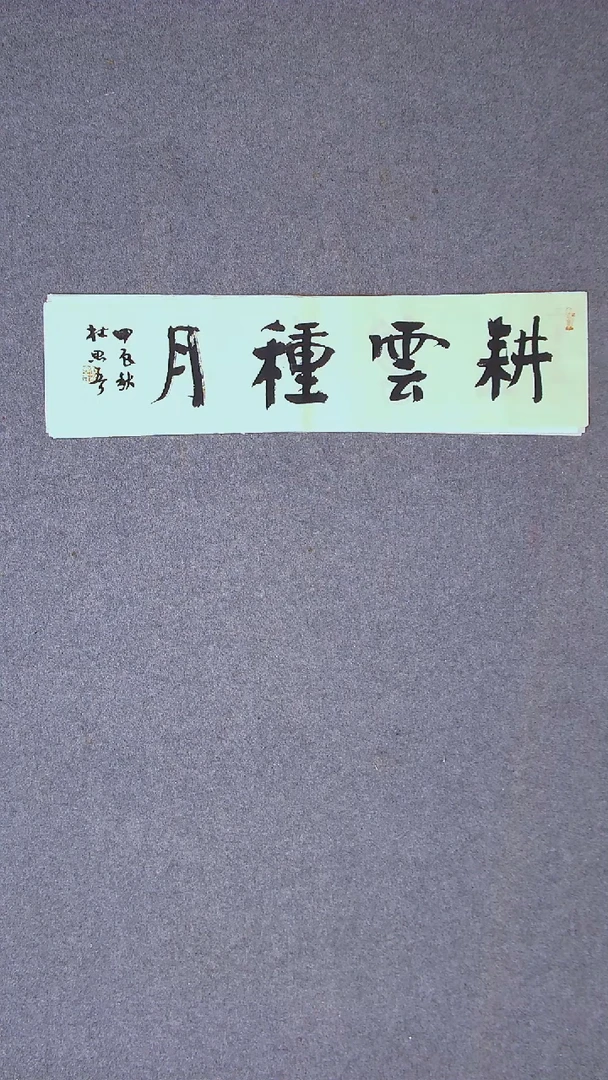 耕雲種月
甲辰秋
杜思琴